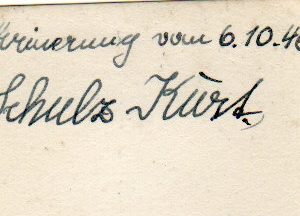 Erinnerung vom 6.10.40
Schulz Kurt.